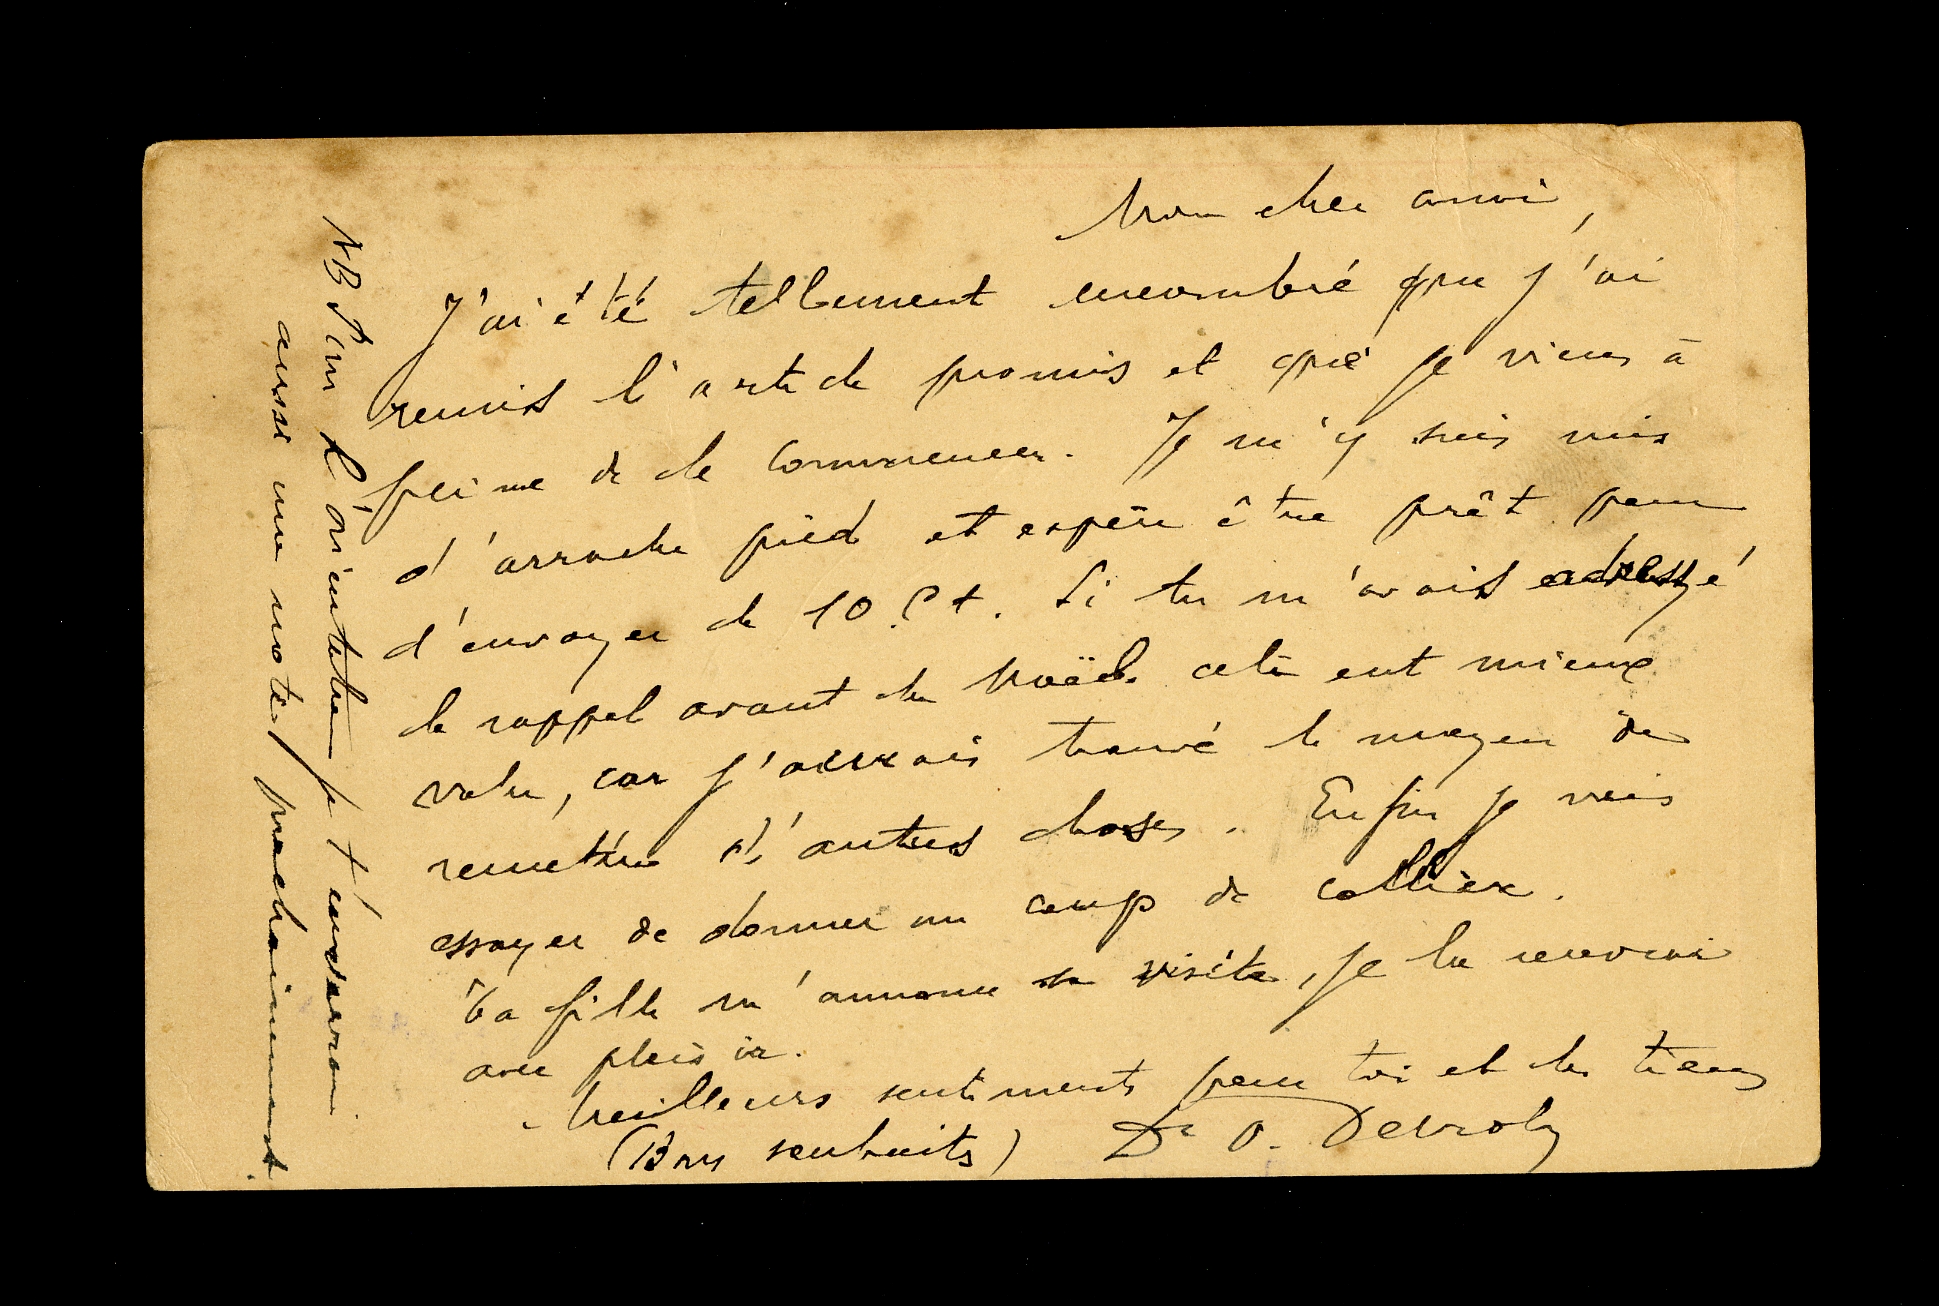 Mon cher ami,
J'ai été tellement encombré que j'ai
remis l'article promis et que je viens à
peine de le commencer. Je m'y suis mis
d'arrache pied et espère être prêt pour
d'envoyer le 10 ct. Si tu m'avais adressé
le rappel avant la Noël cela eut mieux
valu, car j'aurais trouvé le moyen de
remettre d'autres choses. Enfin je vais
essayer de donner un coup de collier.
Ta fille m'annonce sa visite, je la recevrai
avec plaisir.
Meilleurs sentiments pour toi et les tiens
(Bons souhaits) Dr O. Decroly
NB Pour L'orientation je t'enverrai
aussi une note prochainement.